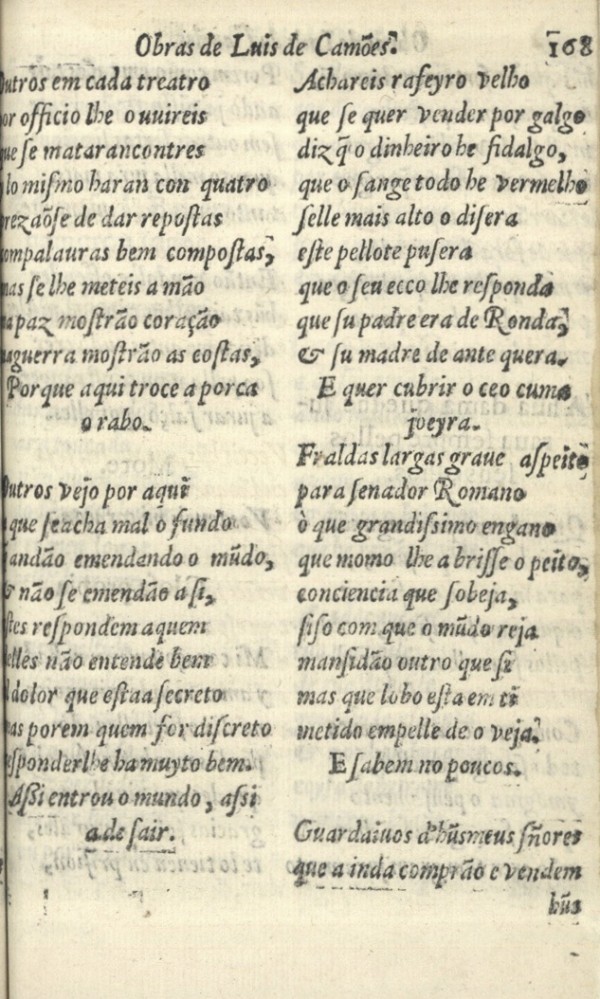 Obras de Luis de Camões.
168
utros em cada treatro
or officio lhe ouuireis
ue se mataran contres
lo mismo haran con quatro
rezaõse de dar repostas
ompalauras bem compostas,
nas se lhe meteis a mão
a paz mostrão coração
aguerra mostrão as costas,
Porque aqui troce a porca
o rabo.
utros vejo por aqui
que se acha mal o fundo
andão emendando o mũdo,
& não se emendão a si,
stes respondem a quem
elles não entende bem
l dolor que esta a secreto
as porem quem for discreto
esponderlhe ha muyto bem.
Assi entrou o mundo, assi
a de sair.
Achareis rafeyro velho
que se quer vender por galgo
diz q̃ o dinheiro he fidalgo,
que o sange todo he vermelho
selle mais alto o disera
este pellote pusera
que o seu ecco lhe responda
que su padre era de Ronda,
& su madre de ante quera.
E quer cubrir o ceo cuma
joeyra.
Fraldas largas graue aspeito
para senador Romano
ò que grandissimo engano
que momo lhe abrisse o peito,
conciencia que sobeja,
siso com que o mũdo reja
mansidão outro que si
mas que lobo esta em ti
metido em pelle de o veja.
E sabem no poucos.
Guardaiuos d'hũs meus sñores
que a inda comprão e vendem
hũs